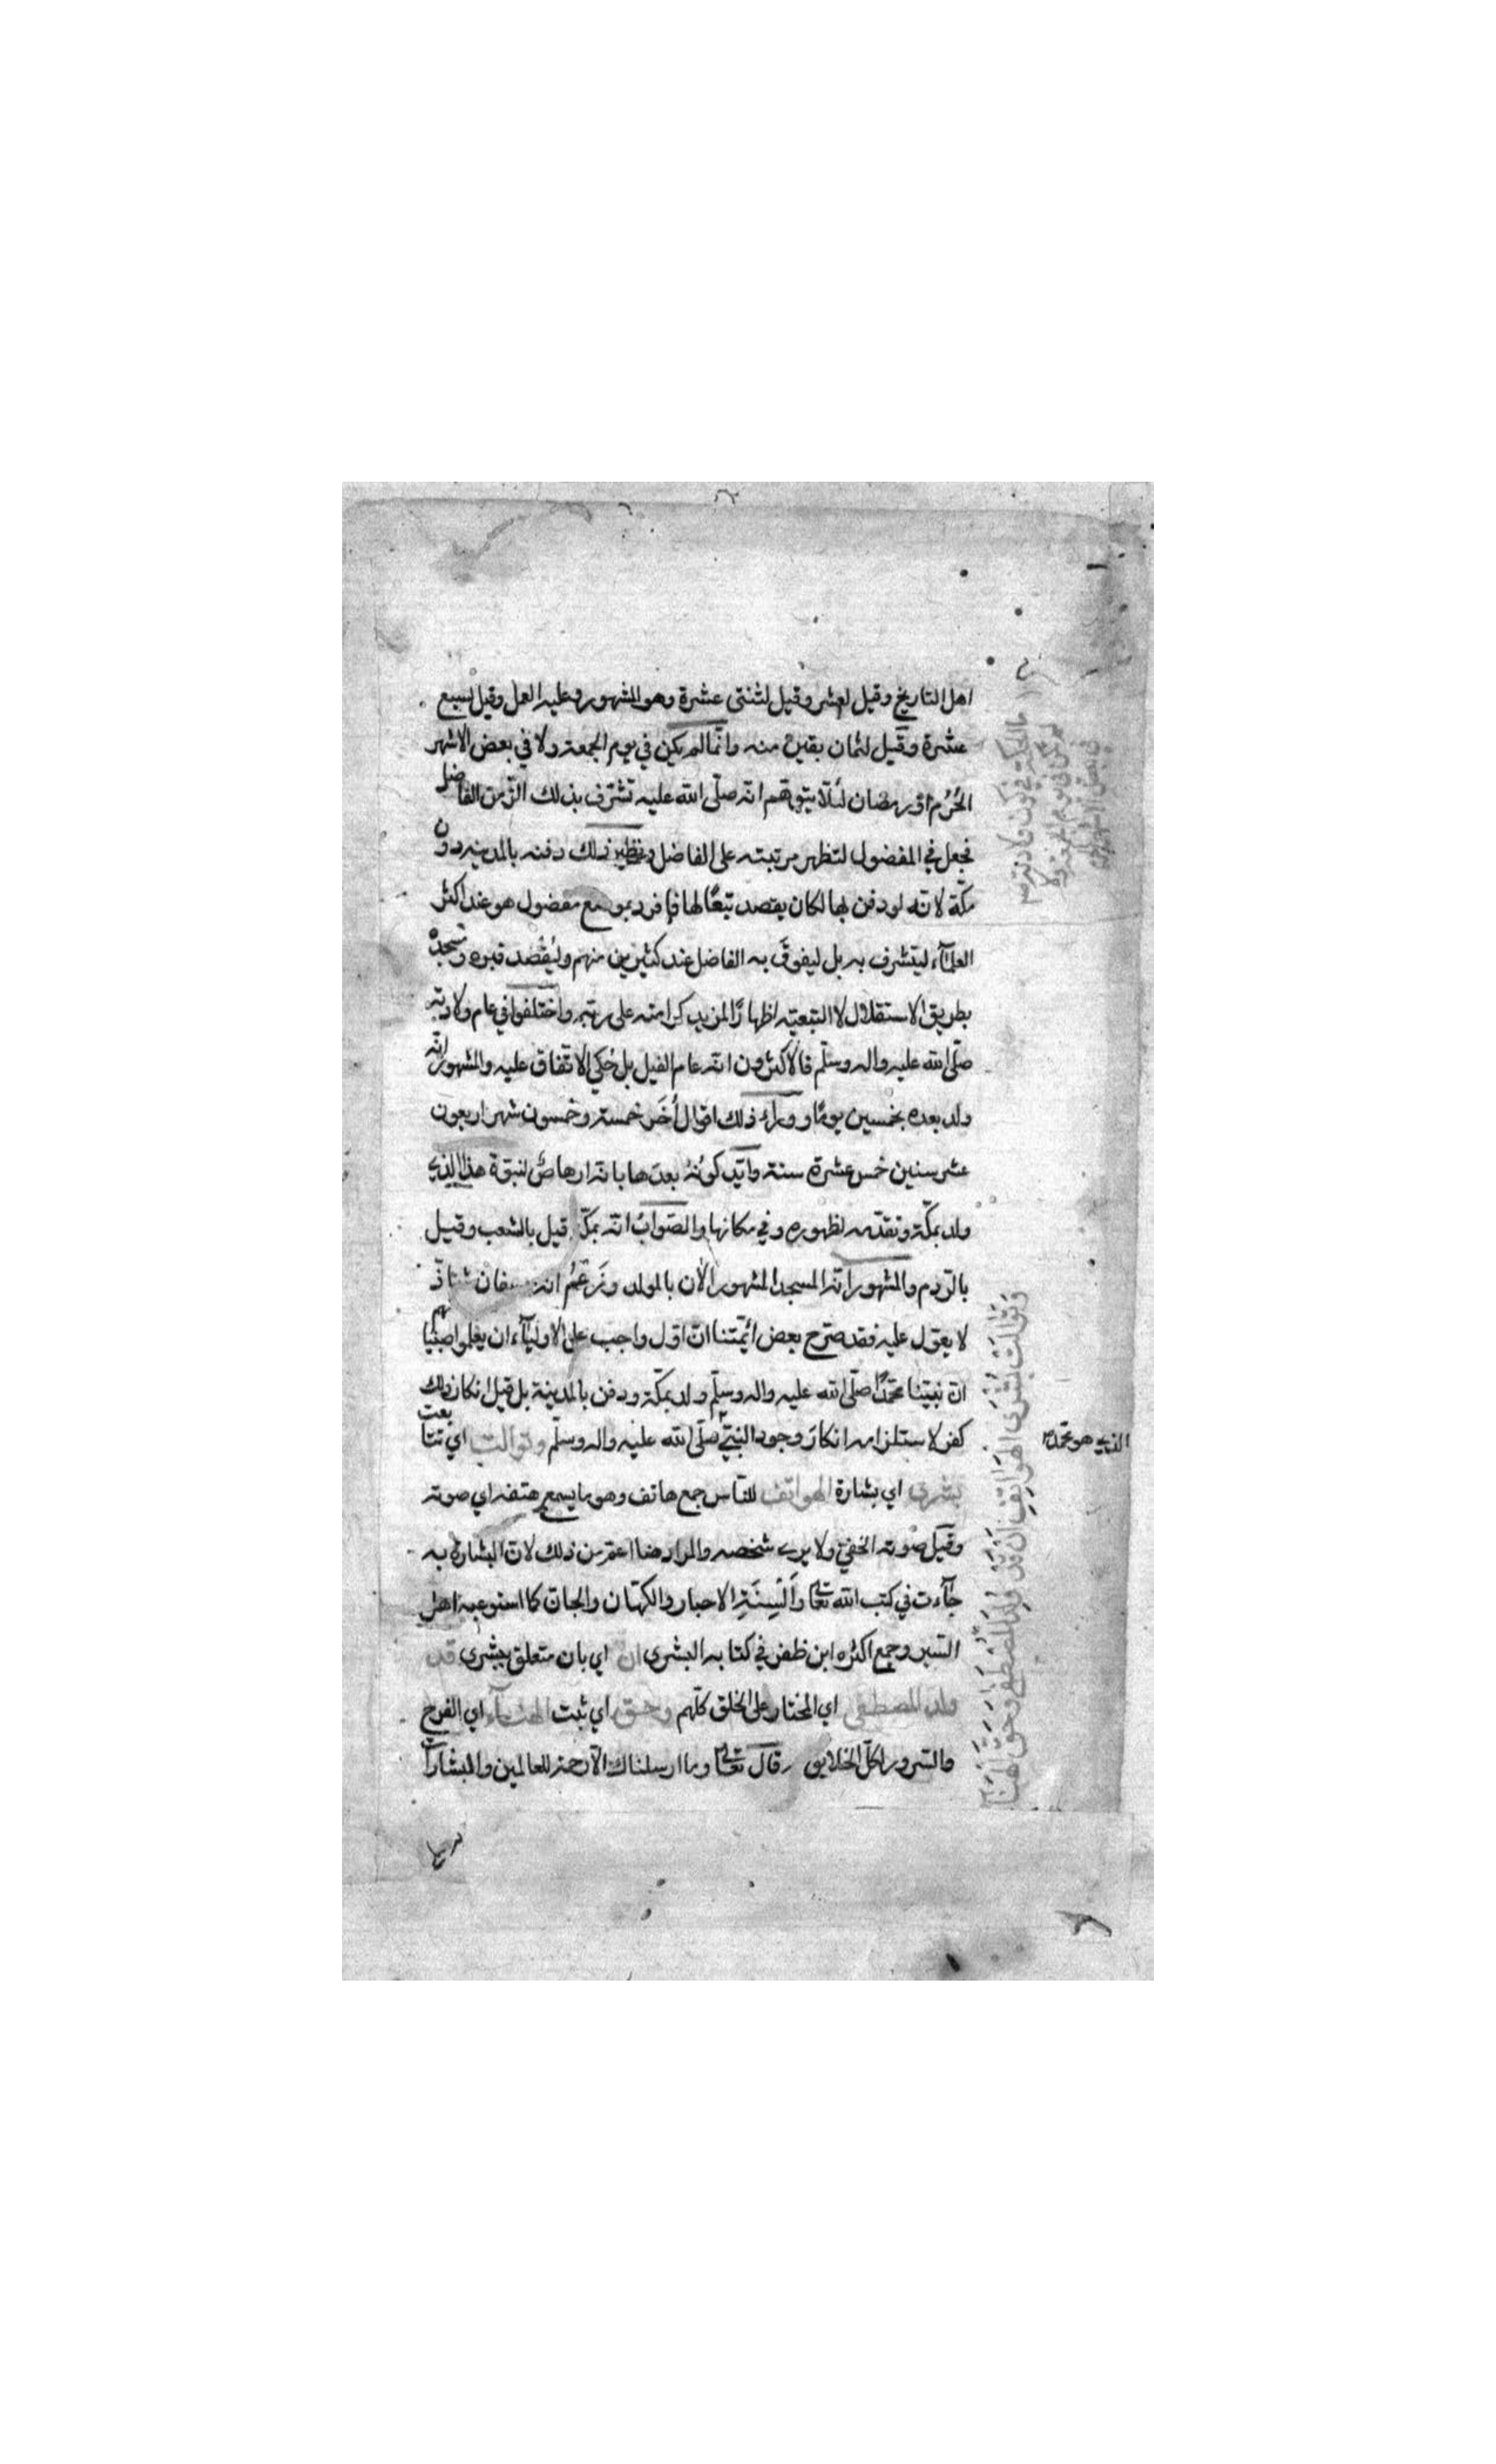 اهل التاريخ وقيل لعشر وقيل لثنتى عشرة وهو المشهور وعليه العمل وقيل لسبع
عشرة وقيل لثمان بقين منه وانّما لم يكن في يوم الجمعة ولا في بعض الاشهر
الحُرُم او رمضان لئلّا يتوهّم انّه صلّى الله عليه تشرّف بذلك الزّمن الفاضل
فجعل في المفضول لتظهر مرتبته على الفاضل ونظير ذلك دفنه بالمدينة دون
مكّة لانّه لو دفن بها لكان يقصد تبعًا لها فافرد بموضع مفضول هو عند اكثر
العلمآء ليتشرف به بل ليفوقَ به الفاضل عند كثيرين منهم وليُقْصد قبره ومسجده
بطريق الاستقلال لا التبعيّة اظهارًا لمزيد كرامته على ربّه واختلفوا في عام ولادته
صلّى الله عليه واله وسلّم فالاكثرون انّه عام الفيل بل حُكي الاتّفاق عليه والمشهور انّه
ولد بعده بخمسين يومًا و وراء ذلك اقوال اُخَر خمسة وخمسون شهر اربعون
عشر سنين خمس عشرة سنة وايّد كونُهُ بعدها بانّه ارهاصٌ لنبوّة هذا الّذي
ولد بمكّة وتقدّمه لظهوره وفي مكانها والصّوابُ انّه بمكّة قيل بالشعب وقيل
بالرّدم والمشهور انّه المسجد المشهور الآن بالمولد وزَعْمُ انّه بعسفان شاذّ
لا يعوّل عليه فقد صرّح بعض ائمّتنا انّ اوّل واجب على الاوليآء ان يعلّموا صبيانهم
انّ نبيّنا محمّدًا صلّى الله عليه واله وسلّم ولد بمكّة ودفن بالمدينة بل قيل انكار ذلك
كفر لاستلزامه انكارَ وجود النبيّ صلّى الله عليه واله وسلّم وتوالت اي تتابعت
بشرى اي بشارة الهواتف للنّاس جمع هاتف وهو ما يسمع هتفه اي صوته
وقيل صوته الخفيّ ولا يرى شخصه والمراد هنا اعمّ من ذلك لانّ البشارة به
جآءت في كتب الله تعالى واَلْسِنَةِ الاحبار والكهّان والجانّ كما استوعبه اهل
السّير وجمع اكثره ابن ظفر في كتابه البشرى ان اي بان متعلق ببشرى قد
ولد المصطفى اي المختار على الخلق كلّهم وحق اي ثبت الهنآء اي الفرح
والسّرور لكلّ الخلايق قال تعالى وما ارسلناك الّا رحمة للعالمين والمبشّرات
الذي هو محمّد
وَتَوَالَتْ بُشْرَى الهَوَاتِفِ اَنْ قَدْ وُلِدَ المُصْطَفَى وَحَقَّ الهَنَآءُ